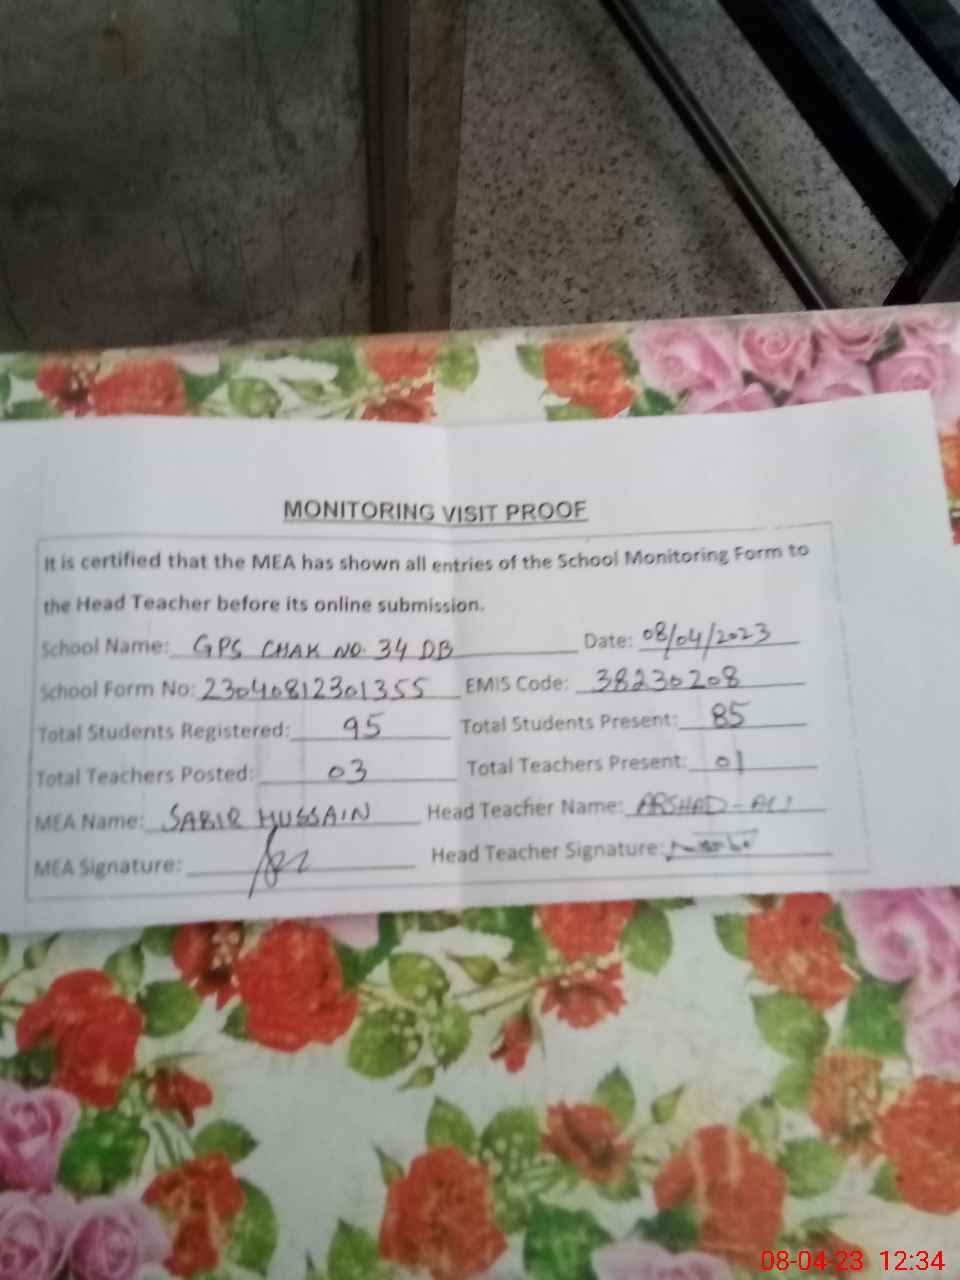 MONITORING VISIT PROOF
It is certified that the MEA has shown all entries of the School Monitoring Form to
the Head Teacher before its online submission.
School Name: GPS CHAK NO. 34 DB Date: 08/04/2023
School Form No: 23040812301355 EMIS Code: 38230208
Total Students Registered: 95 Total Students Present: 85
Total Teachers Posted: 03 Total Teachers Present: 01
MEA Name: SABIR HUSSAIN Head Teacher Name: ARSHAD-ALI
MEA Signature: Head Teacher Signature:
08-04-23 12:34